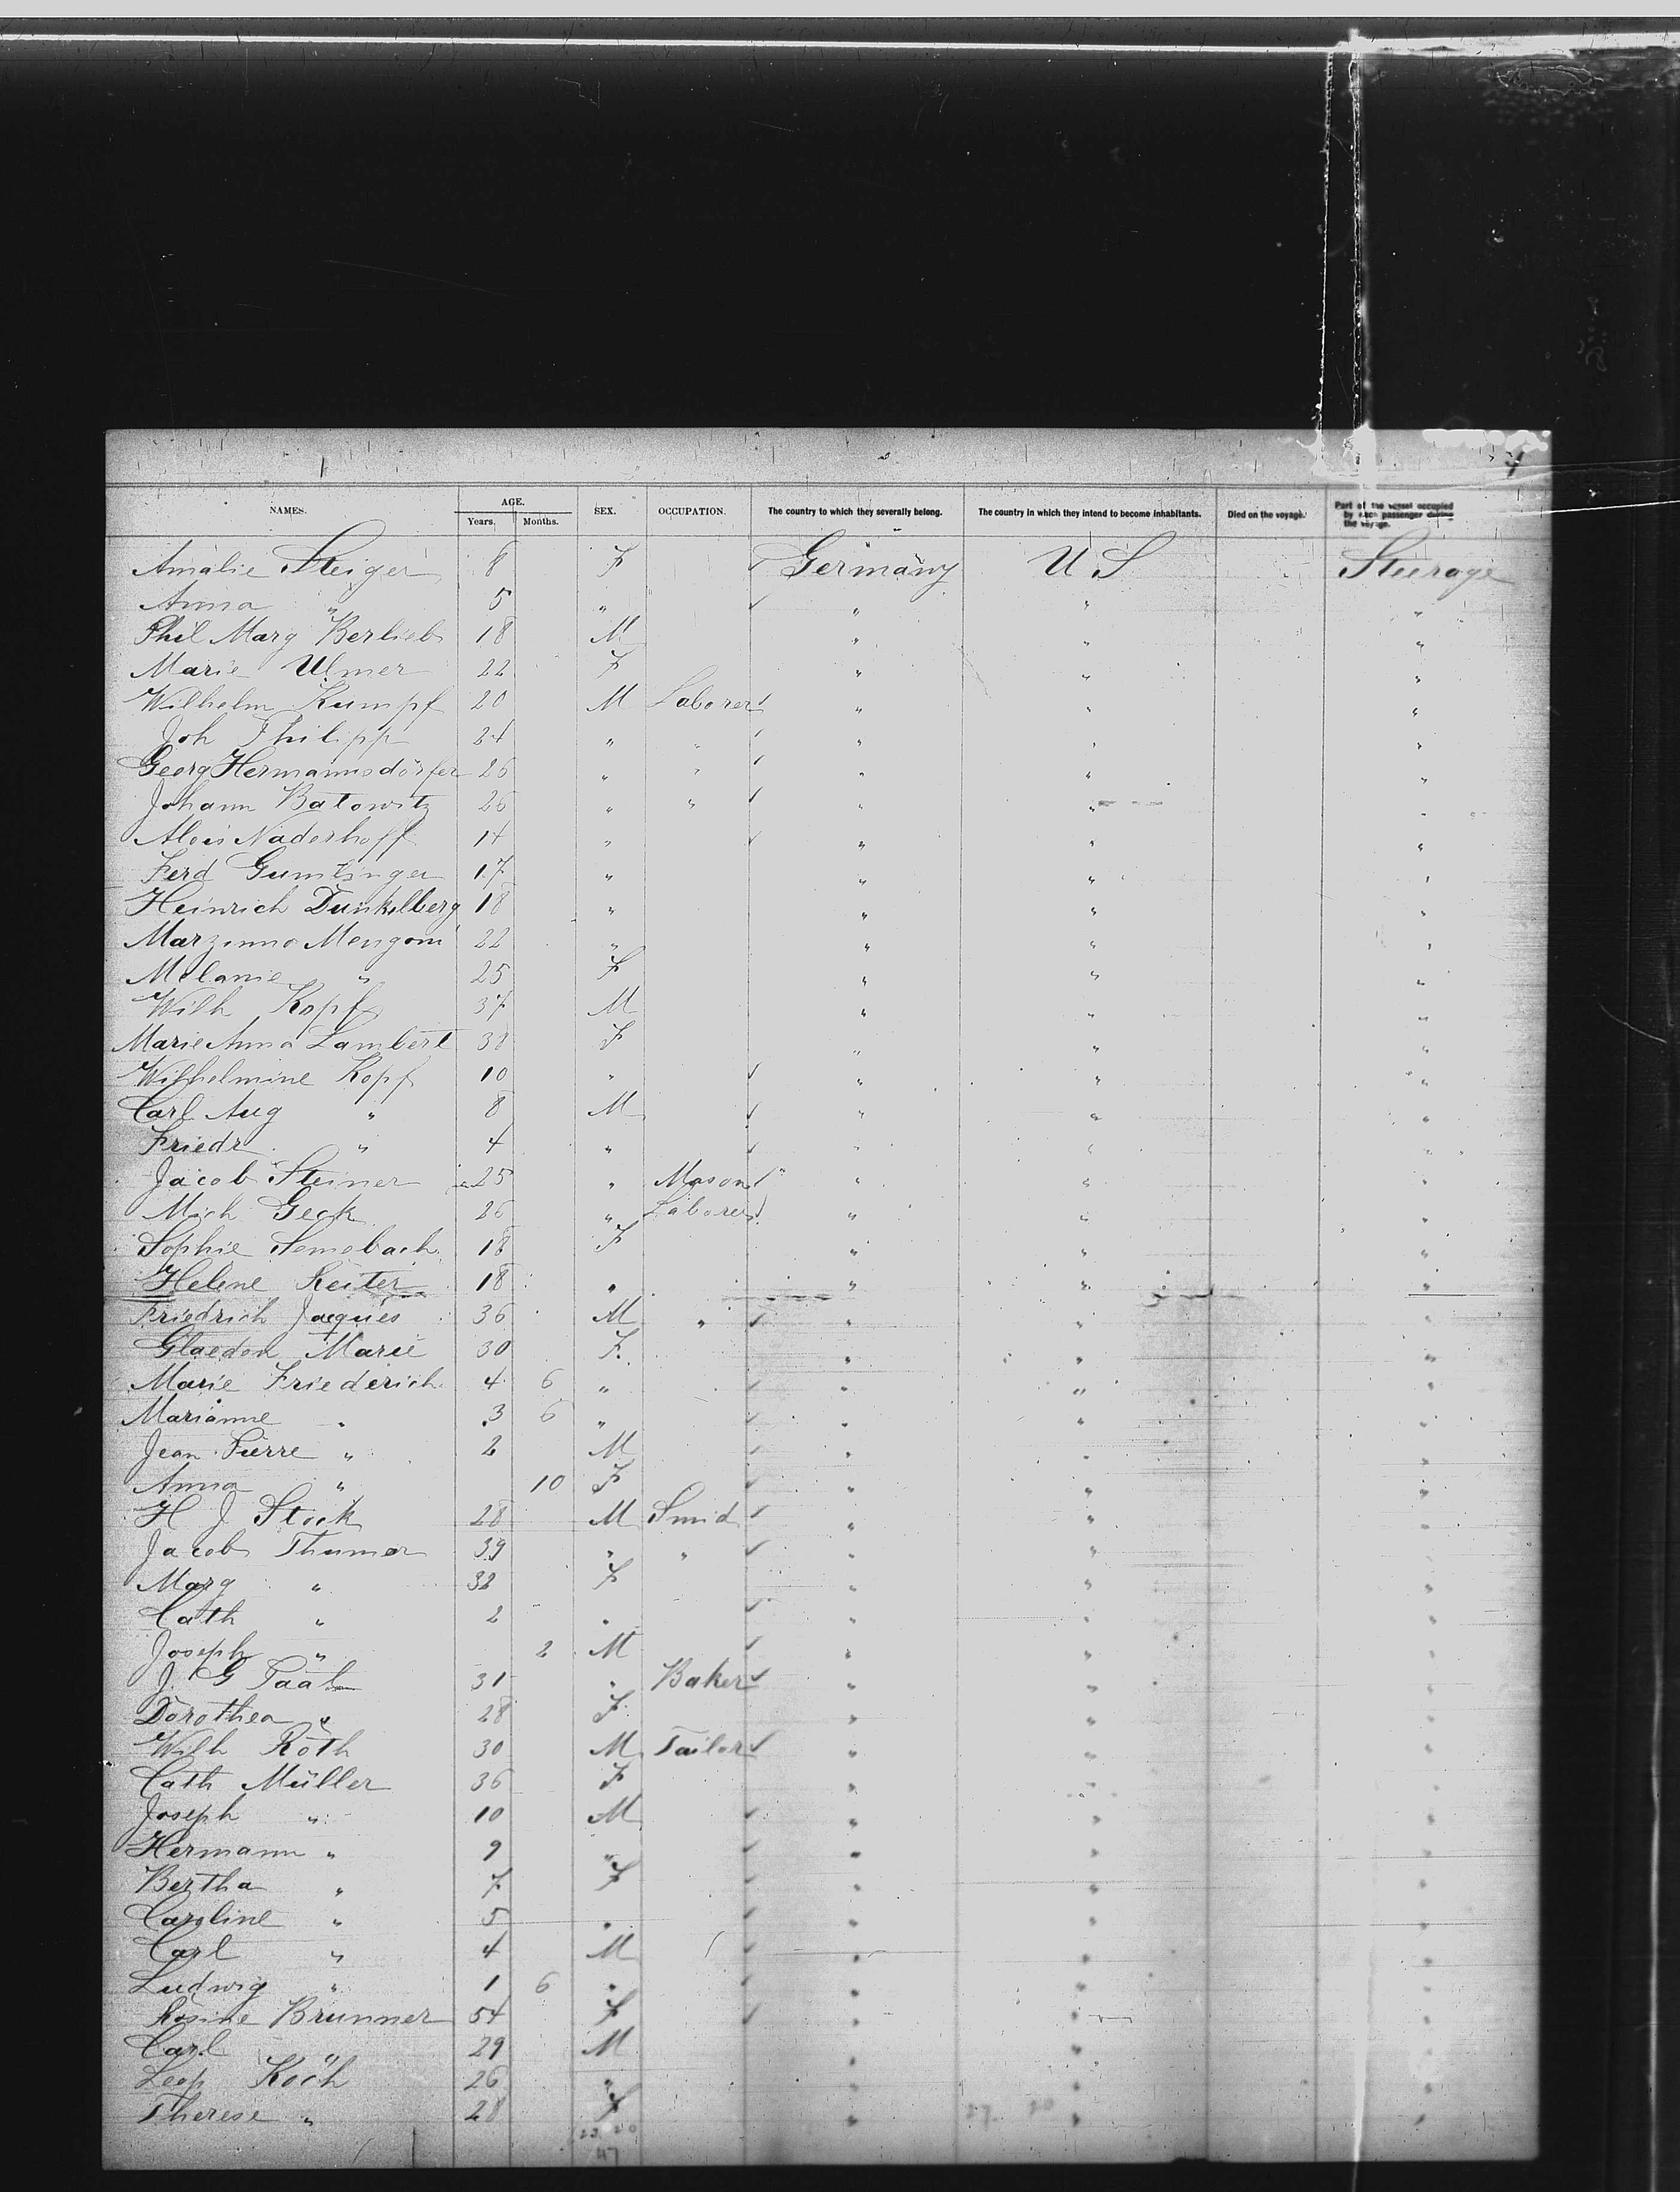 4
NAMES. AGE. SEX. OCCUPATION. The country to which they severally belong. The country in which they intend to become inhabitants. Died on the voyage. Part of the vessel occupied by each passenger during the voyage.
Years. Months.
Amalie Steiger 8 F ✓ Germany U S Steerage
Anna " 5 " ✓ " " "
Phil Marg Berlieb 18 M " " "
Marie Ulmer 22 F " " "
Wilhelm Kumpf 20 M Laborer ✓ " " "
Joh Philipp 24 " " ✓ " " "
Georg Hermannsdörfer 26 " " ✓ " " "
Johann Batowitz 26 " " ✓ " " "
Alois Naderhoff 14 " ✓ " " "
Ferd Gumtinger 17 " " " "
Heinrich Dunkelberg 18 " " " "
Marzinno Mengoni 22 " " " "
Melanie " 25 F " " "
Wilh Kopf 37 M " " "
Marie Anna Lambert 38 F " " "
Wilhelmine Kopf 10 " ✓ " " "
Carl Aug " 8 M ✓ " " "
Friedr " 4 " ✓ " " "
Jacob Steiner 25 " Mason ✓ " " "
Mich Geck 26 " Laborer ✓ " " "
Sophie Semsbach 18 F " " "
Helene Reiter 18 " " " "
Friedrich Jacques 36 M " ✓ " " "
Glaedon Marie 30 F " " "
Marie Friederich 4 6 " ✓ " " "
Marianne " 3 6 " ✓ " " "
Jean Pierre " 2 M ✓ " " "
Anna " 10 F ✓ " " "
H J Stock 28 M Smid ✓ " " "
Jacob Thumer 39 " " ✓ " " "
Marg " 32 F " " "
Cath " 2 " ✓ " " "
Joseph " 2 M ✓ " " "
J. G Paal 31 " Baker ✓ " " "
Dorothea " 28 F " " "
Wilh Roth 30 M Tailor ✓ " " "
Cath Müller 36 F " " "
Joseph " 10 M ✓ " " "
Hermann " 9 " ✓ " " "
Bertha " 7 F ✓ " " "
Caroline " 5 " ✓ " " "
Carl " 4 M ✓ " " "
Ludwig " 1 6 " ✓ " " "
Rosine Brunner 54 F ✓ " " "
Carl " 29 M " " "
Leop Koch 26 " " " "
Therese " 28 F " " "
27 20
47